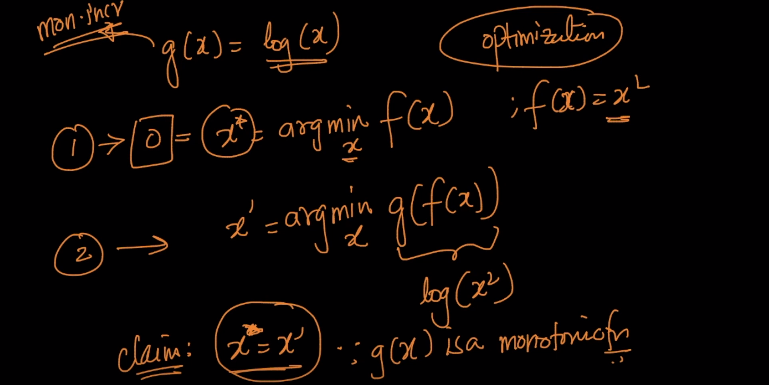 mon.incr
g(x) = log(x)
optimization
① → 0 = x* = argmin x f(x) ; f(x) = x²
② → x' = argmin x g(f(x))
log(x²)
claim: x* = x' ∵ g(x) is a monotonic fn